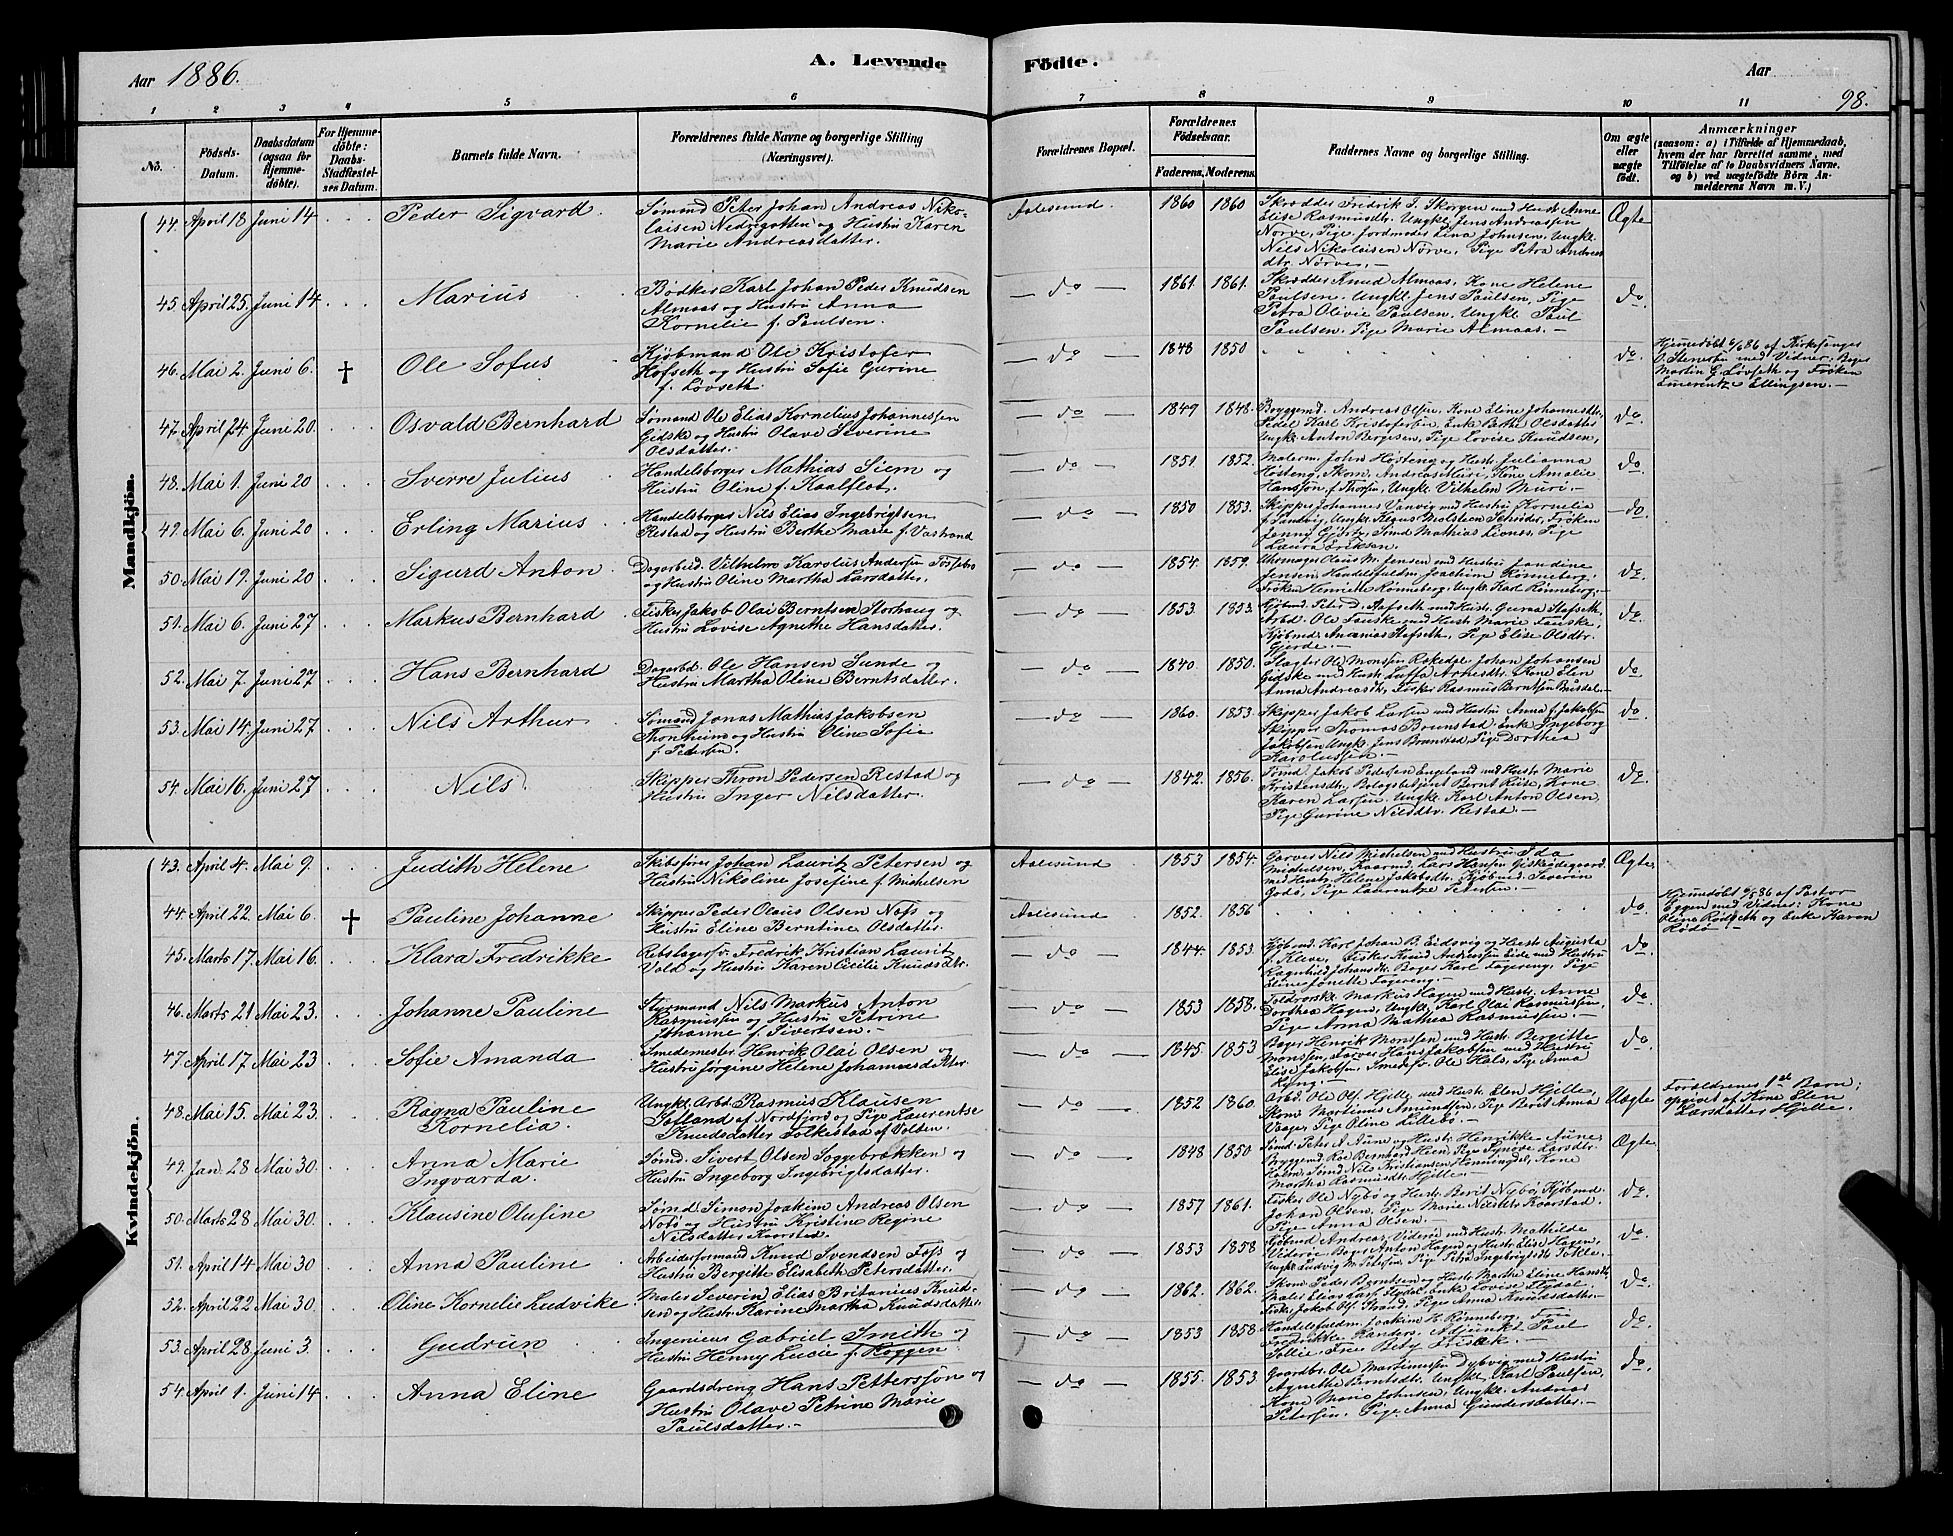 Aar 1886.
A. Levende Födte.
Aar
98.
1 2 3 4 5 6 7 8 9 10 11
No.
Födsels-Datum.
Daabsdatum (ogsaa for Hjemme-döbte).
For Hjemme-döbte: Daabs-Stadfæstel-ses Datum.
Barnets fulde Navn.
Forældrenes fulde Navne og borgerlige Stilling (Næringsvei).
Forældrenes Bopæl.
Forældrenes Födselsaar.
Faderens. Moderens.
Faddernes Navne og borgerlige Stilling.
Om ægte eller uægte födt.
Anmærkninger
(saasom: a) i Tilfælde af Hjemmedaab, hvem der har forrettet samme, med Tilföielse af to Daabsvidners Navne, og b) ved uægtefödte Börn Anmelderens Navn m. V.)
Mandkjön.
44. April 18 Juni 14 Peder Sigvard. Sømand Peter Johan Andreas Niko-
laisen Nedregotten og Hustru Karen
Marie Andreasdatter.
Aalesund. 1860 1860 Skrædder Fredrik J. Skorgen med Hustr. Anne
Elise Rasmusdtr. Ungkl. Jens Andreassen
Nørve, Pige Jordmoder Lina Johnsen, Ungkl.
Nils Nikolaisen Nørve, Pige Petra Andreas
dtr. Nørve.
Ægte
45. April 25. Juni 14 Marius Bødker Karl Johan Peder Knudsen
Almaas og Hustru Anna
Kornelie f. Paulsen.
do 1861. 1861. Skrædder Knud Almaas, Kone Helene
Paulsen. Ungkl. Jens Paulsen, Pige
Petra Olivie Paulsen. Ungkl. Paul
Paulsen. Pige Marie Almaas.
do.
46. Mai 2. Juni 6. † Ole Sofus Kjøbmand Ole Kristofer
Hofseth og Hustru Sofie Gurine
f. Løvseth.
do 1848 1850 do. Hjemmedøbt 6/6 86 af Kirkesanger
O. Stenersen med Vidner: Bager
Martin G. Løvseth og Frøken
Emerentze Ellingsen.
47. April 24 Juni 20. Osvald Bernhard Sømand Ole Elias Kornelius Johannessen
Gidske og Hustru Olave Severine
Olsdatter.
do 1849 1848. Byggemd. Andreas Olsen, Kone Eline Johannesdtr.
Pedel Karl Kristofersen, Enke Berthe Olsdatter
Ungkl. Anton Borgesen, Pige Lovise Knudsen,
do.
48. Mai 1. Juni 20 Sverre Julius Handelsborger Mathias Siem og
Hustru Oline f. Kaalflot.
do 1851. 1852. Malerm. John Høsteng og Hustr. Julianna
Høsteng, Skom. Andreas Muri, Kone Amalie
Hanssøn f. Thorsen, Ungkl. Vilhelm Muri.
do
49. Mai 6. Juni 20 Erling Marius Handelsborger Nils Elias Ingebrigtsen
Restad og Hustru Berthe Marie f. Vastrand
do 1850 1853. Skipper Johannes Vanvig med Hustru Kornelia
f. Sandvig, Ungkl. Klaus Molsteen Schrøder, Frøken
Jenny Gjørtz, Sømd Mathias Lianes, Pige
Laura Eriksen.
do.
50. Mai 19. Juni 20 Sigurd Anton Dagarbeid. Vilhelm Karolus Andersen
og Hustru Oline Martha Larsdatter.
do 1854. 1859. Uhrmager Olaus M. Jensen med Hustru Jandine
Jensen, Handelsfuldm. Joachim Rønneberg,
Frøken Henriette Rønneberg, Ungkl. Karl Rønneberg.
do
51. Mai 6. Juni 27 Markus Bernhard Fisker Jakob Olai Berntsen Storhaug og
Hustru Lovise Agnethe Hansdatter.
do 1853 1853. Kjøbmd. Peter D. Hofseth med Hustr. Gurua Hofseth,
Arbd. Ole Tauske med Hustr. Marie Tauske,
Kjøbmd. Ananias Hofseth, Pige Elise Olsdtr.
Gjerde.
do
52. Mai 7. Juni 27 Hans Bernhard Dagarbd. Ole Hansen Sunde og
Hustru Martha Oline Berntsdatter.
do 1840 1850. Slagter Ole Monsen Rakedge, Johan Johansen
Gidske med Hustr. Luffa Arnesdtr. Kone Elen
Anna Andreasdtr., Fisker Rasmus Berntsen Busdal.
do
53. Mai 14. Juni 27 Nils Arthur Sømand Jonas Mathias Jakobsen
Thonheim og Hustru Oline Sofie
f. Pedersen.
do 1860. 1853. Skipper Jakob Larsen med Hustru Anna f. Jakobsen
Skipper Thomas Brunstad, Enke Ingeborg
Jakobsen, Ungkl. Jens Brunstad, Pige Dorthea
Karolussen.
do.
54. Mai 16. Juni 27 Nils. Skipper Thron Pedersen Restad og
Hustru Inger Nilsdatter.
do 1842. 1856. Sømd. Jakob Pedersen Engeland med Hustr. Marie
Kristensdtr., Bolagsbetjent Bernt Riise, Kone
Karen Larsen, Ungkl. Karl Anton Olsen,
Pige Gurine Nilsdtr. Restad.
do.
Kvindekjön.
43. April 4. Mai 9. Judith Helene Skibsfører Johan Lauritz Petersen og
Hustru Nikoline Josefine f. Michelsen
Aalesund 1853 1854. Garver Nils Michelsen med Hustru Ida
Michelsen, Gaarmd. Lars Hansen Giskeødegaard
med Hustr. Helene Jakobsdtr., Kjøbmd. Severin
Godø, Pige Laurentze Petersen.
Ægte.
44. April 22. Mai 6. † Pauline Johanne Skipper Peder Olaus Olsen Næss og
Hustru Eline Berntine Olsdatter.
Aalesund 1852. 1856 do. Hjemmedøbt 6/5 86 af Pastor
Eggen med Vidner: Kone
Oline Rødseth og Enke Karen
Rødø
45. Marts 17. Mai 16. Klara Fredrikke Rebslagersv. Fredrik Kristian Laurits
Vold og Hustru Karen Cecilie Knudsdtr.
do 1844. 1853. Kjøbmd. Karl Johan B. Eidsvig og Hustr. Augusta
f. Kleve, Fisker Knud Andreassen Eide med Hustru
Ragnhild Johansdtr. Bager Karl Fagereng, Pige
Eline Jonette Fagereng.
do.
46. Marts 21 Mai 23. Johanne Pauline Styrmand Nils Markus Anton
Rasmussen og Hustru Petrine
Johanne f. Sivertsen.
do 1853 1858. Toldrorsk. Markus Hagen med Hustr. Anne
Dorthea Hagen, Ungkl. Karl Olai Rasmussen,
Pige Anna Mathea Rasmussen.
do.
47. April 17 Mai 23 Sofie Amanda Smedemester Henrik Olai Olsen og
Hustru Jørgine Helene Johannesdatter
do 1845. 1853. Bager Henrik Monssen med Hustr. Bergitte
Monssen, Farver Hans Jakobsen med Hustru
Elise Jakobsen, Smedsv. Ole Hals, Pige Anna
Lyng.
do.
48. Mai 15. Mai 23. Ragna Pauline
Kornelia.
Ungkl. Arbd. Rasmus Klausen
Sætland af Nordfjord og Pige Laurentse
Knudsdatter Folkestad af Volden.
do 1852 1860. Arbd. Ole Olsen Hjelle med Hustr. Elen Hjelle,
Skom. Martinus Amundsen, Pige Berit Anna
Vaage, Pige Oline Lillebø.
Uægte Forældrenes 1ste Barn;
opgivet af Kone Elen
Larsdatter Hjelle.
49. Jan. 28 Mai 30. Anna Marie
Ingvarda.
Sømd. Sivert Olsen Soggebrækken og
Hustru Ingeborg Ingebrigtsdatter.
do 1848 1850 Sømd. Peter A. Aune og Hustr. Henrikke Aune,
Byggemd. Ras. Bernhard Heen, Pige Synøve Larsdtr.
Holm, Sømd Nils Kristiansen Honningdal, Kone
Martha Rasmusdtr. Hjelle.
Ægte.
50. Marts 28 Mai 30. Klausine Olufine Sømd Simon Joakim Andreas Olsen
Notø og Hustru Kristine Regine
Nilsdatter Kaarstad.
do 1857 1861. Fisker Ole Nybø og Hustr. Berit Nybø, Kjøbmd.
Johan Olsen, Pige Marie Nilsdtr. Kaarstad
Pige Anna Olsen.
do.
51. April 14 Mai 30 Anna Pauline Arbeidsformand Knud Svendsen Foss og
Hustru Bergitte Elisabeth Petersdatter.
do 1853 1858 Gjøbmd Andreas Viderø med Hustr. Mathilde
Viderøe, Bager Anton Hagen og Hustr. Elise Hagen,
Ungkl. Ludvig M. Petersen, Pige Petra Ingebrigtsdtr. Tokle.
do.
52. April 22 Mai 30. Oline Kornelie Ludvike. Maler Severin Elias Britanius Knud-
sen og Hustr. Karine Martha Knudsdatter.
do 1862. 1862. Skom. Peder Berntsen og Hustr. Marthe Eline Hansdtr.
Maler Elias Lars. Flydal, Enke Lovise Flydal,
Fisker Jakob Ol. Strand, Pige Anna Knudsdatter.
do.
53. April 28 Juni 3. Gudrun Ingeniør Gabriel Smith og
Hustru Henny Lucie f. Roggen.
do 1853 1858. Handelsfuldm. Joachim H. Rønneberg, Frøi
Fredrikke Randers, Adjunkt Paul
Tollie, Frøi Bety Frisak.
do.
54. April 1. Juni 14. Anna Eline Gaardsdreng Hans Pettersson og
Hustru Olave Petrine Marie
Paulsdatter.
do 1855. 1853. Gaardbr. Ole Martinussen Dybvig med Hustru
Agnethe Berntsdtr., Ungkl. Karl Paulsen,
Kone Marie Johnsen, Ungkl. Andreas
Petersen, Pige Anna Gundersdatter.
do.